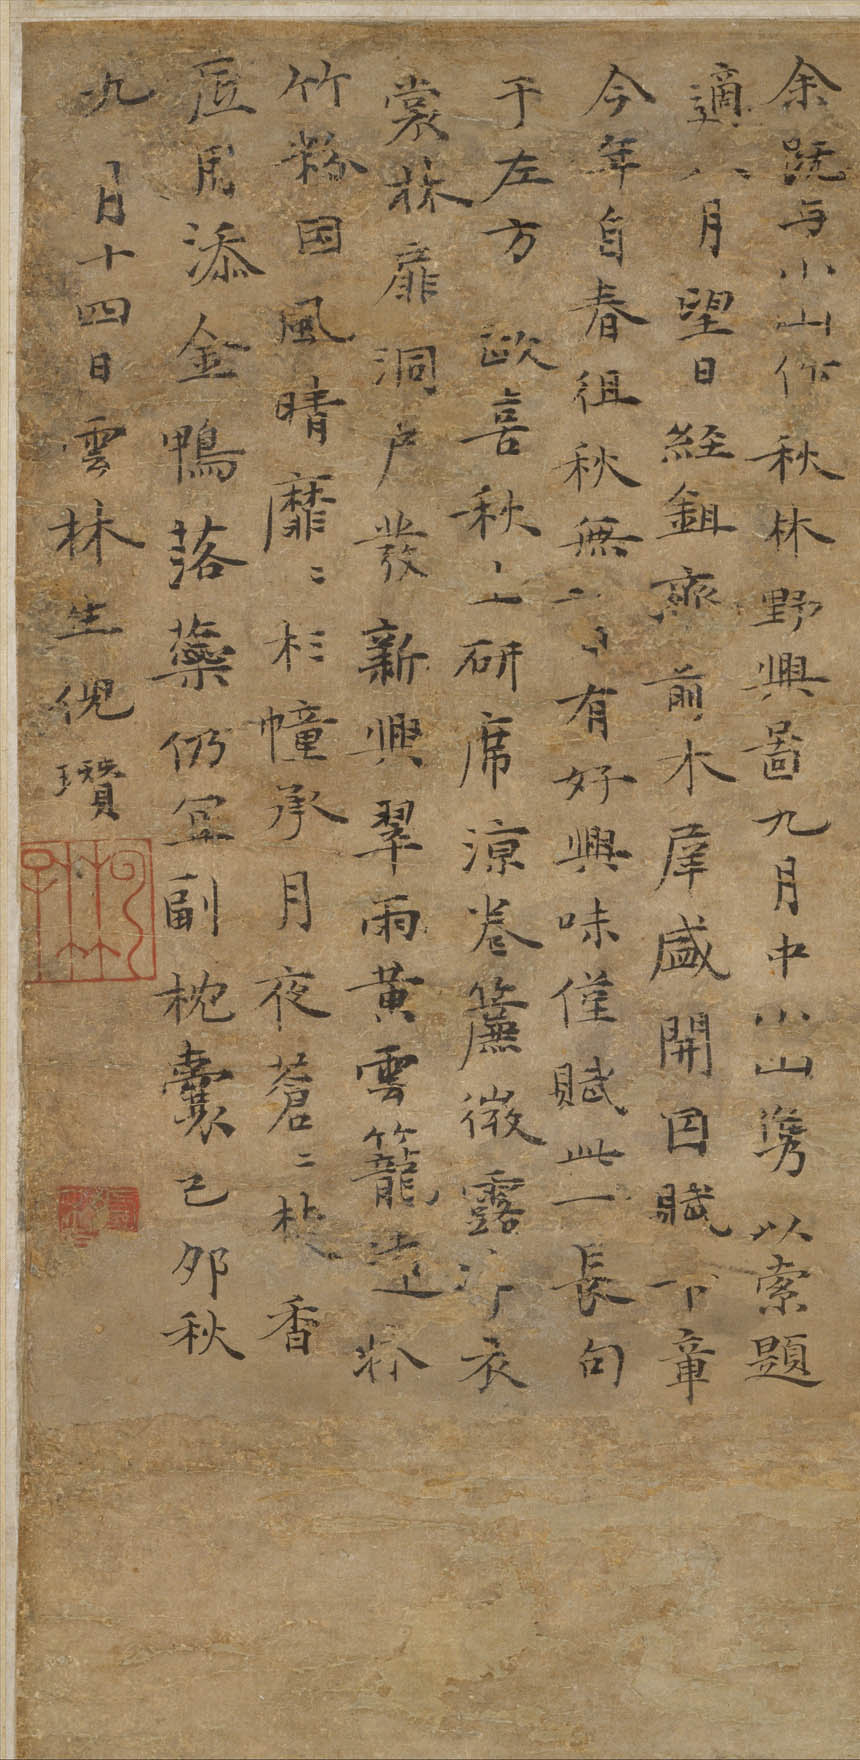 余既与小山作秋林野興圖九月中小山携以索題
適八月望日經鉏齋前木犀盛開因賦下章
今年自春徂秋無一日有好興味僅賦此一長句
于左方
政喜秋生研席凉卷簾微露淨衣
裳林扉洞户發新興翠雨黄雲籠遠牀
竹粉因風晴靡〻杉幢承月夜蒼〻
焚香底用添金鴨落蘂仍宜副枕囊己夘秋
九月十四日雲林生倪瓚